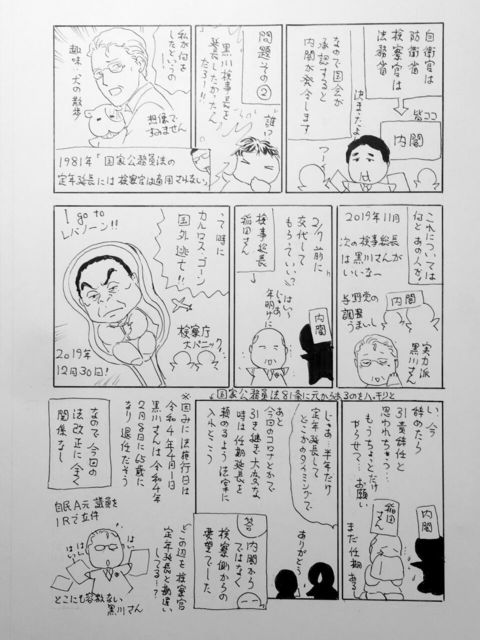 自衛官は
防衛省
検察官は
法務省
皆ココ
内閣
決まったよ
なので国会が
承認すると
内閣が発令します
問題その②
黒川検事長を
延長したかったん
だろ!!
誰?
私が何を
したというの
趣味 犬の散歩
想像で
すみません
1981年「国家公務員法の
定年延長には検察官は適用されない」
これについては
なんとあの人が!
2019年11月
次の検事総長
は黒川さんが
いいなー
内閣
与野党の
調整
うまいし
実力派
黒川さん
コノ前に
交代して
もらっていい?
検事総長
稲田さん
はい
じゃあ
年明けに
内閣
って時に
カルロス・ゴーン
国外逃亡!!
I go to
レバノーン!!
検察庁
大パニック
2019年
12月30日!
国家公務員法81条に元からあるのをハッキリと
い、今
辞めたら
引責辞任と
思われちゃう…
もうちょっとだけ
やらせて…お願い
内閣
稲田
さん
まだ任期ある
じゃあ…半年だけ
定年延長して
どこかのタイミングで
ありがとう
あと
今回のコロナとかで
引き継ぎ大変な
時は任期延長を
頼めるよう法案に
入れとこう
答
内閣から
ではなく
検察側からの
要望でした
※因みに法施行日は
令和4年4月1日
黒川さんは令和4年
2月8日に65歳に
なり退任だそう
この辺を検察官
定年延長と勘違い
してる…?
なので今回の
法改正に全く
関係なし
自民A元議員を
IRで立件
はい
はい
はい
どこにも容赦ない
黒川さん